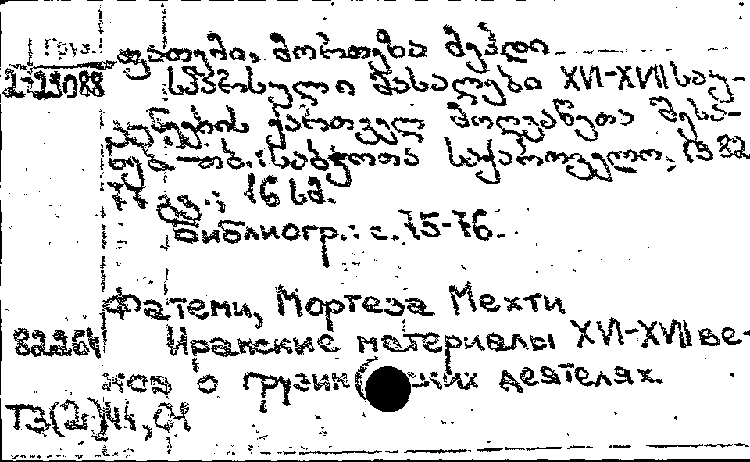 Груз.
2-23088
ფათემი, მორთეზა მეჰდი
სპარსული მასალები XVI-XVII საუ-
კუნეების ქართველ მოღვაწეთა შესა-
ხებ.-თბ.: საბჭოთა საქართველო, 1982
77 გვ.; 16 სმ.
Библиогр.: с. 75-76.
Фатеми, Мортеза Мехти
82264 Иранские материалы XVI-XVII ве-
ков о грузинских деятелях.
Т3(2г)44,01